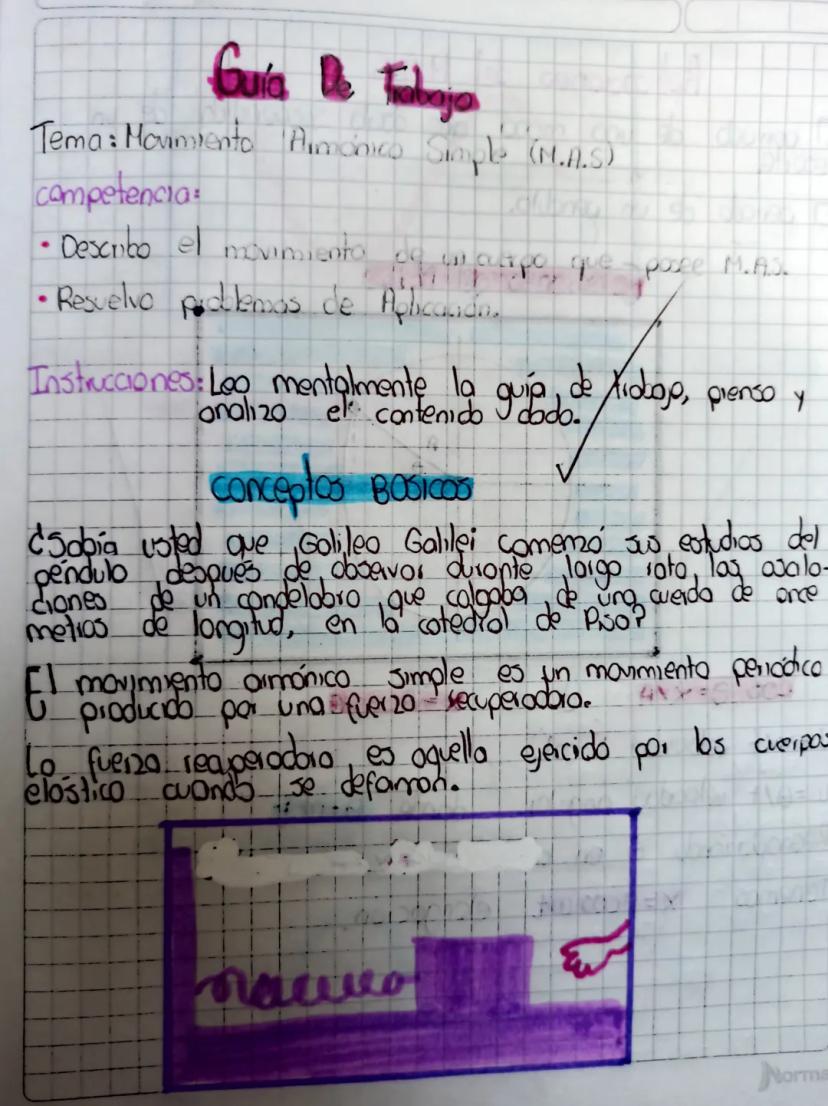 Guía De Trabajo
Tema: Movimiento Armónico Simple (M.A.S)
competencia:
• Describo el movimiento de un cuerpo que posee M.A.S.
• Resuelvo problemas de Aplicación.
Instrucciones: Leo mentalmente la guía de trabajo, pienso y
analizo el contenido dado.
conceptos BÁSICOS
¿Sabía usted que Galileo Galilei comenzó sus estudios del
péndulo después de observar durante largo rato, las oscila-
ciones de un candelabro que colgaba de una cuerda de once
metros de longitud, en la catedral de Pisa?
El movimiento armónico simple es un movimiento periódico
producido por una fuerza recuperadora.
La fuerza recuperadora es aquella ejercida por los cuerpos
elástico cuando se deforman.
Norma